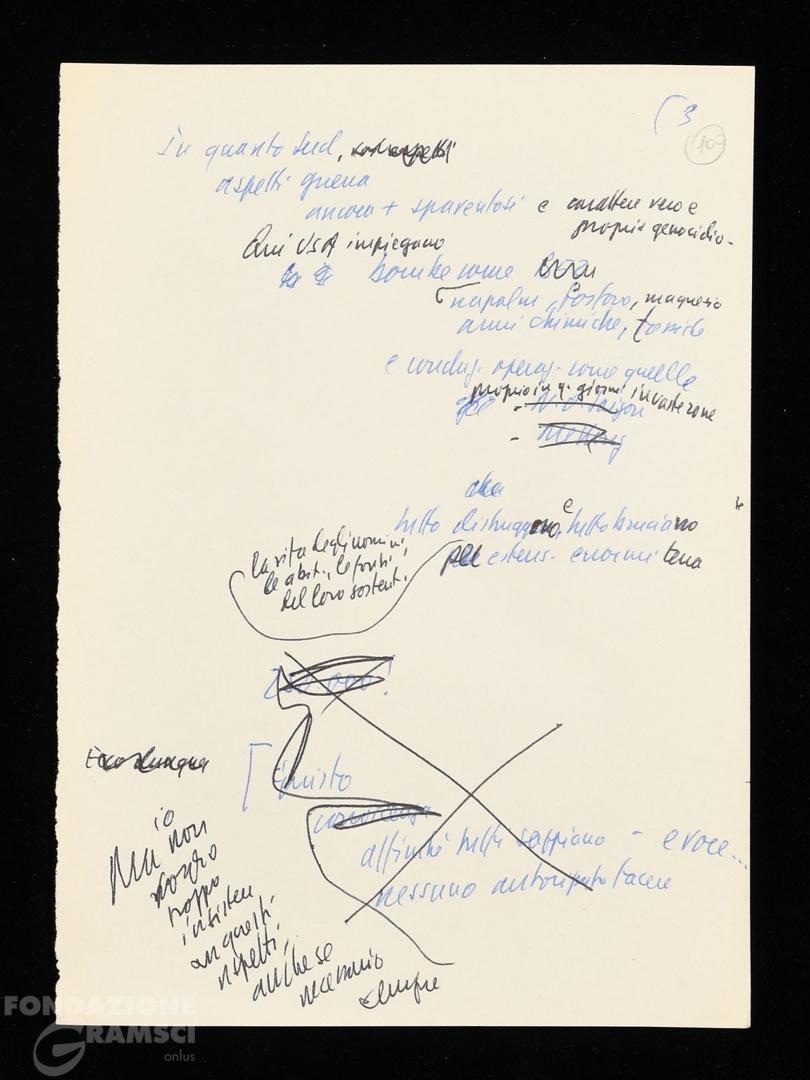 [3
109
In quanto Sud,
aspetti guerra
ancora + spaventosi e carattere vero e
proprio genocidio -
Qui USA impiegano
bombe come
napalm, fosforo, magnesio
armi chimiche, tossiche
e conduc. operaz. come quelle
proprio in q. giorni in vaste zone
- N.O. Saigon
- Mekong
che
tutto distruggono, e tutto bruciano
per estens. enormi terra
la vita degli uomini,
le abit., le fonti
del loro sostent.
250.000!
Ecco dunque
[È giusto
affinché tutti sappiano - e voce...
nessuno autorizzato tacere
Ma io non
voglio
troppo
insistere
su questi
aspetti,
anche se
necessario
sempre
FONDAZIONE
GRAMSCI
onlus